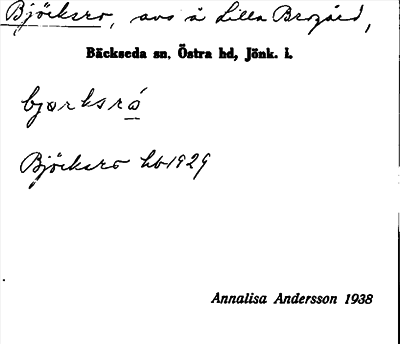 Björksro, avs å Lilla Brogård,
Bäckseda sn, Östra hd, Jönk. l.
bjorksró
Björksro hb 1929
Annalisa Andersson 1938